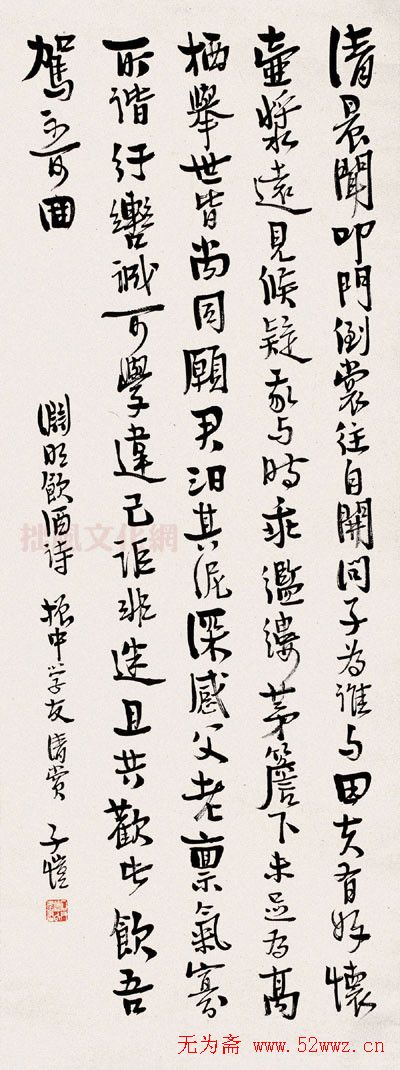 清晨聞叩門倒裳往自開問子為誰与田夫有好懷
壺漿遠見候疑我与時乖襤縷茅簷下未足為高
栖舉世皆尚同願君汩其泥深感父老稟氣寡
所諧紆轡誠可學違己詎非迷且共歡此飲吾
駕不可回
淵明飲酒詩 振中学友清賞 子愷
拙風文化網
无为斋 www.52wwz.cn